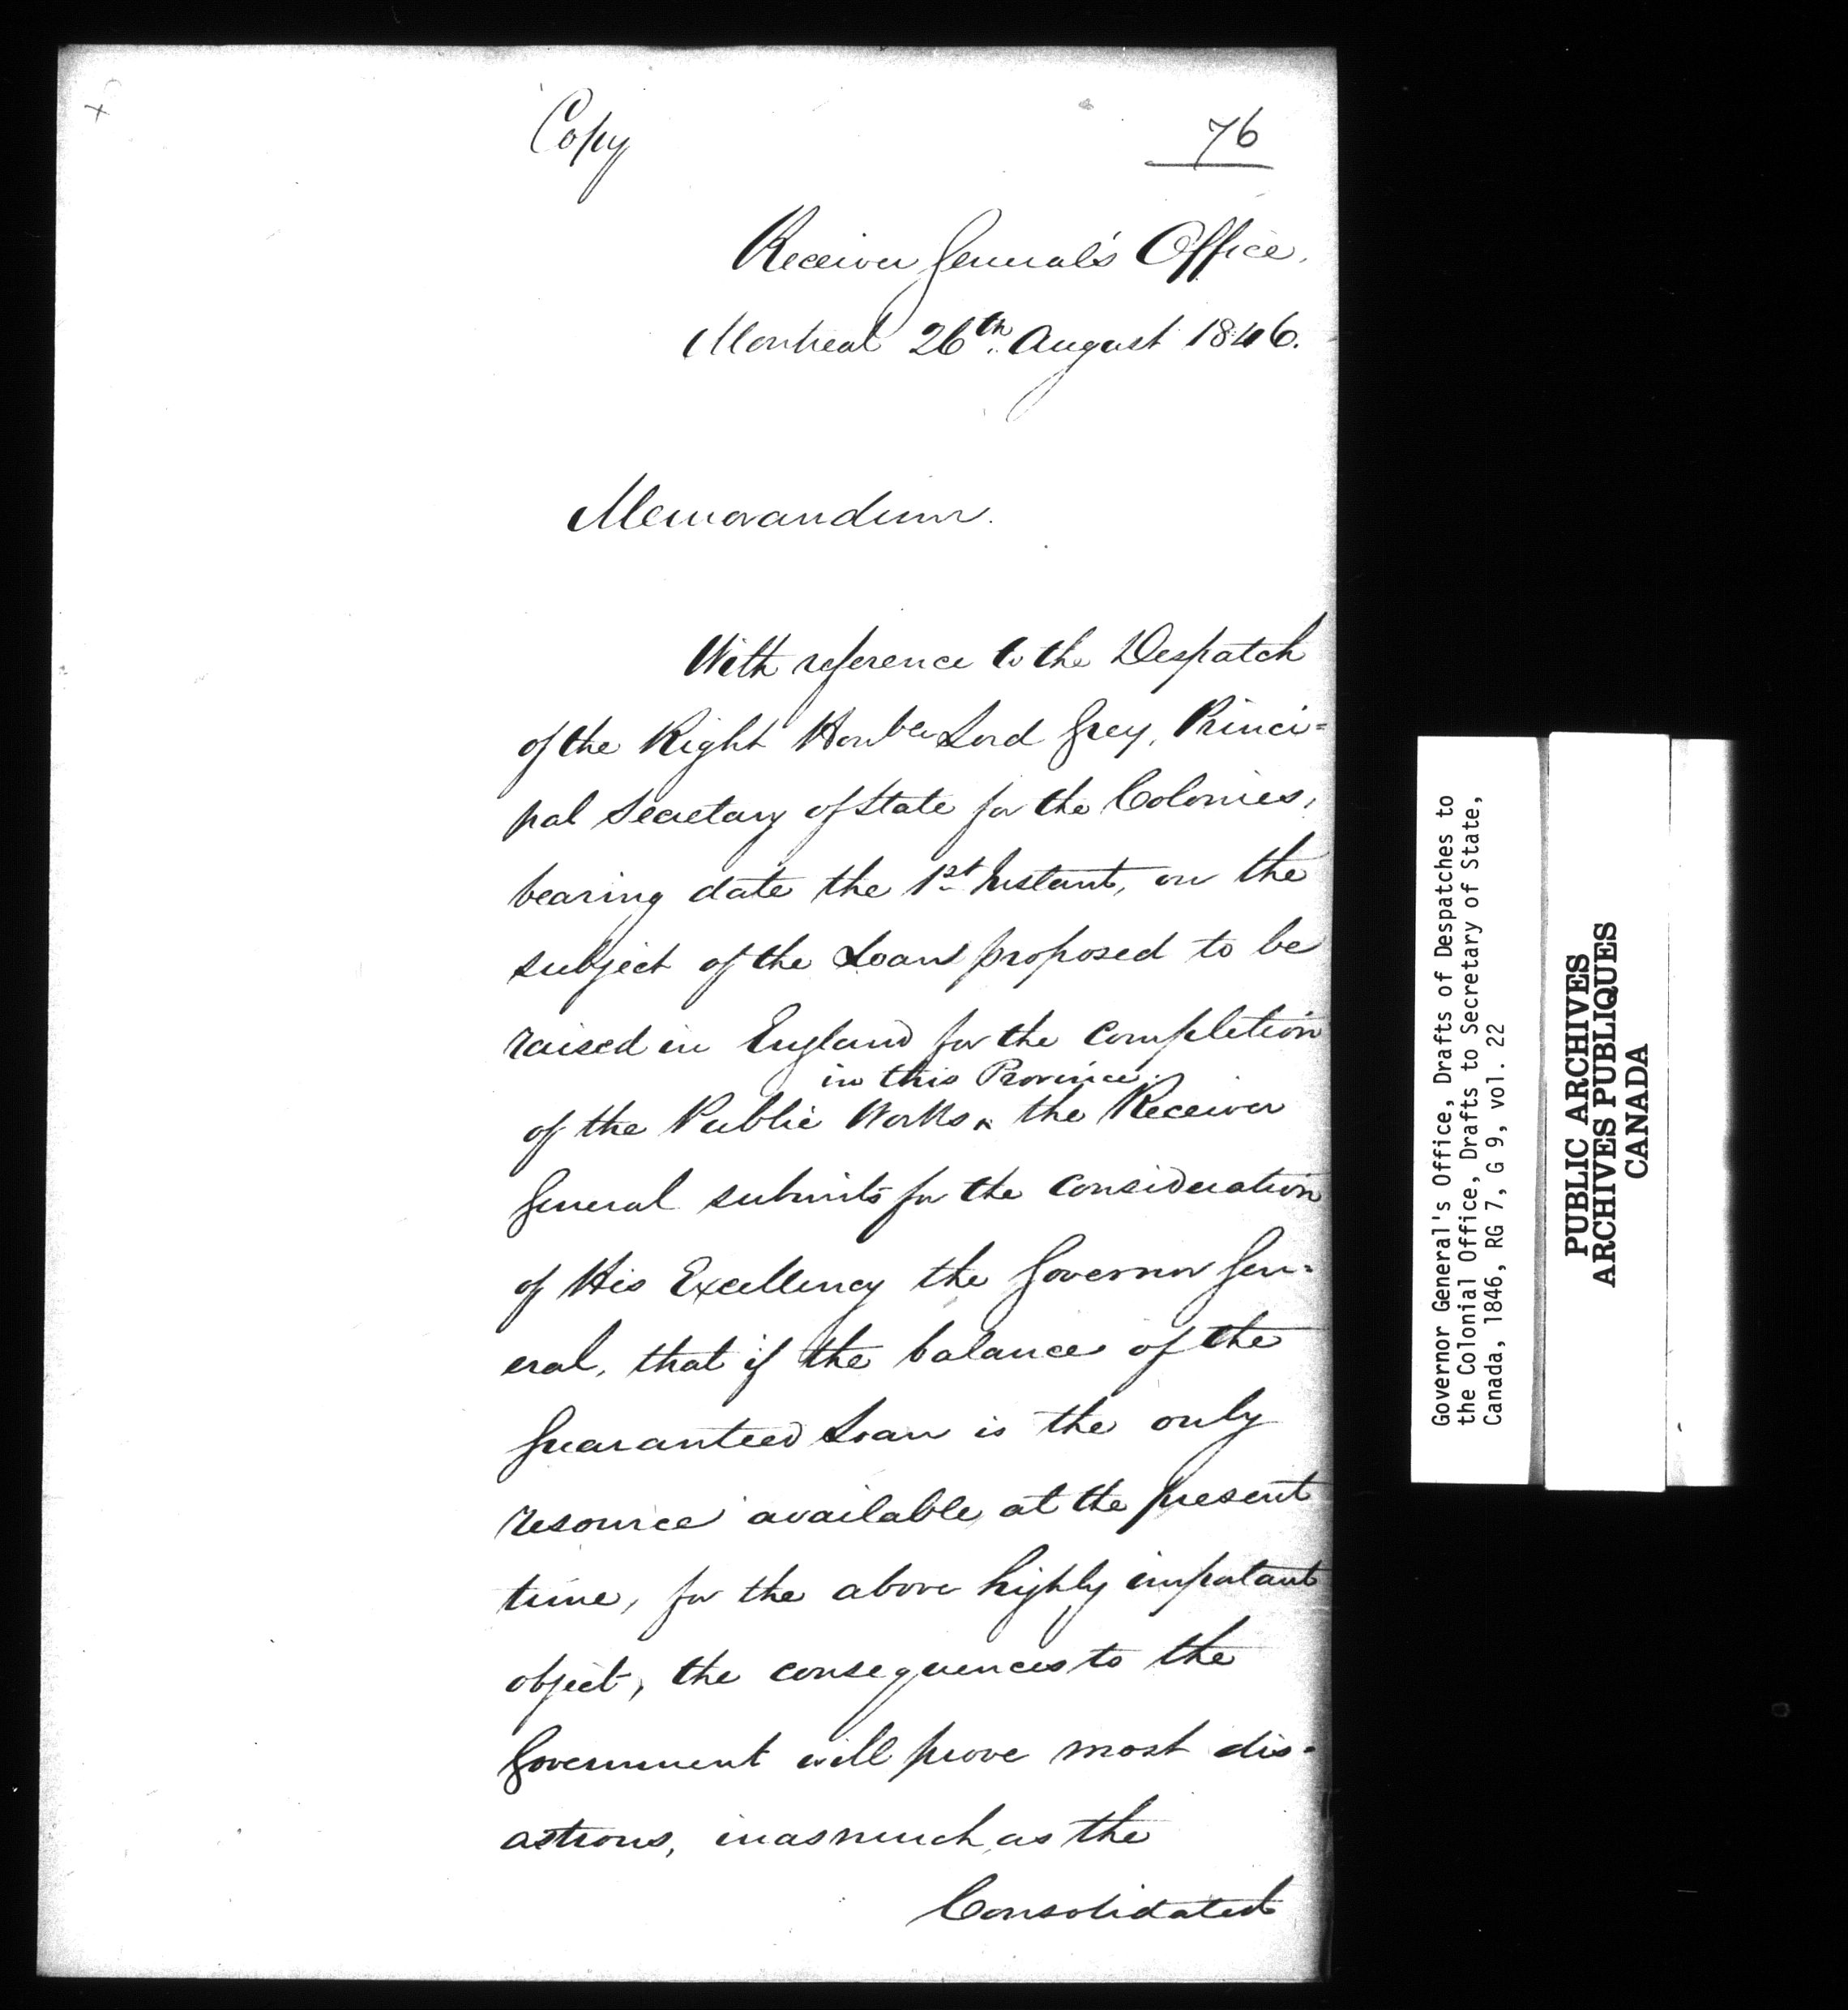 Copy
76
Receiver General's Office,
Montreal 26th August 1846.
Memorandum.
With reference to the Despatch
of the Right Honble Lord Grey, Princi=
pal Secretary of State for the Colonies,
bearing date the 1st Instant, on the
subject of the Loan proposed to be
raised in England for the completion
in this Province.
of the Public Works ^ the Receiver
General submits for the consideration
of His Excellency the Governor Gen=
eral, that if the balance of the
Guaranteed Loan is the only
resource available, at the present
time, for the above highly important
object, the consequences to the
Government will prove most dis=
astrous, inasmuch, as the
Consolidated
Governor General's Office, Drafts of Despatches to
the Colonial Office, Drafts to Secretary of State,
Canada, 1846, RG 7, G 9, vol. 22
PUBLIC ARCHIVES
ARCHIVES PUBLIQUES
CANADA